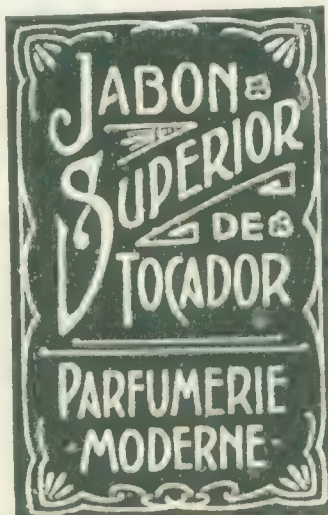 JABON
SUPERIOR
DE
TOCADOR
PARFUMERIE
MODERNE